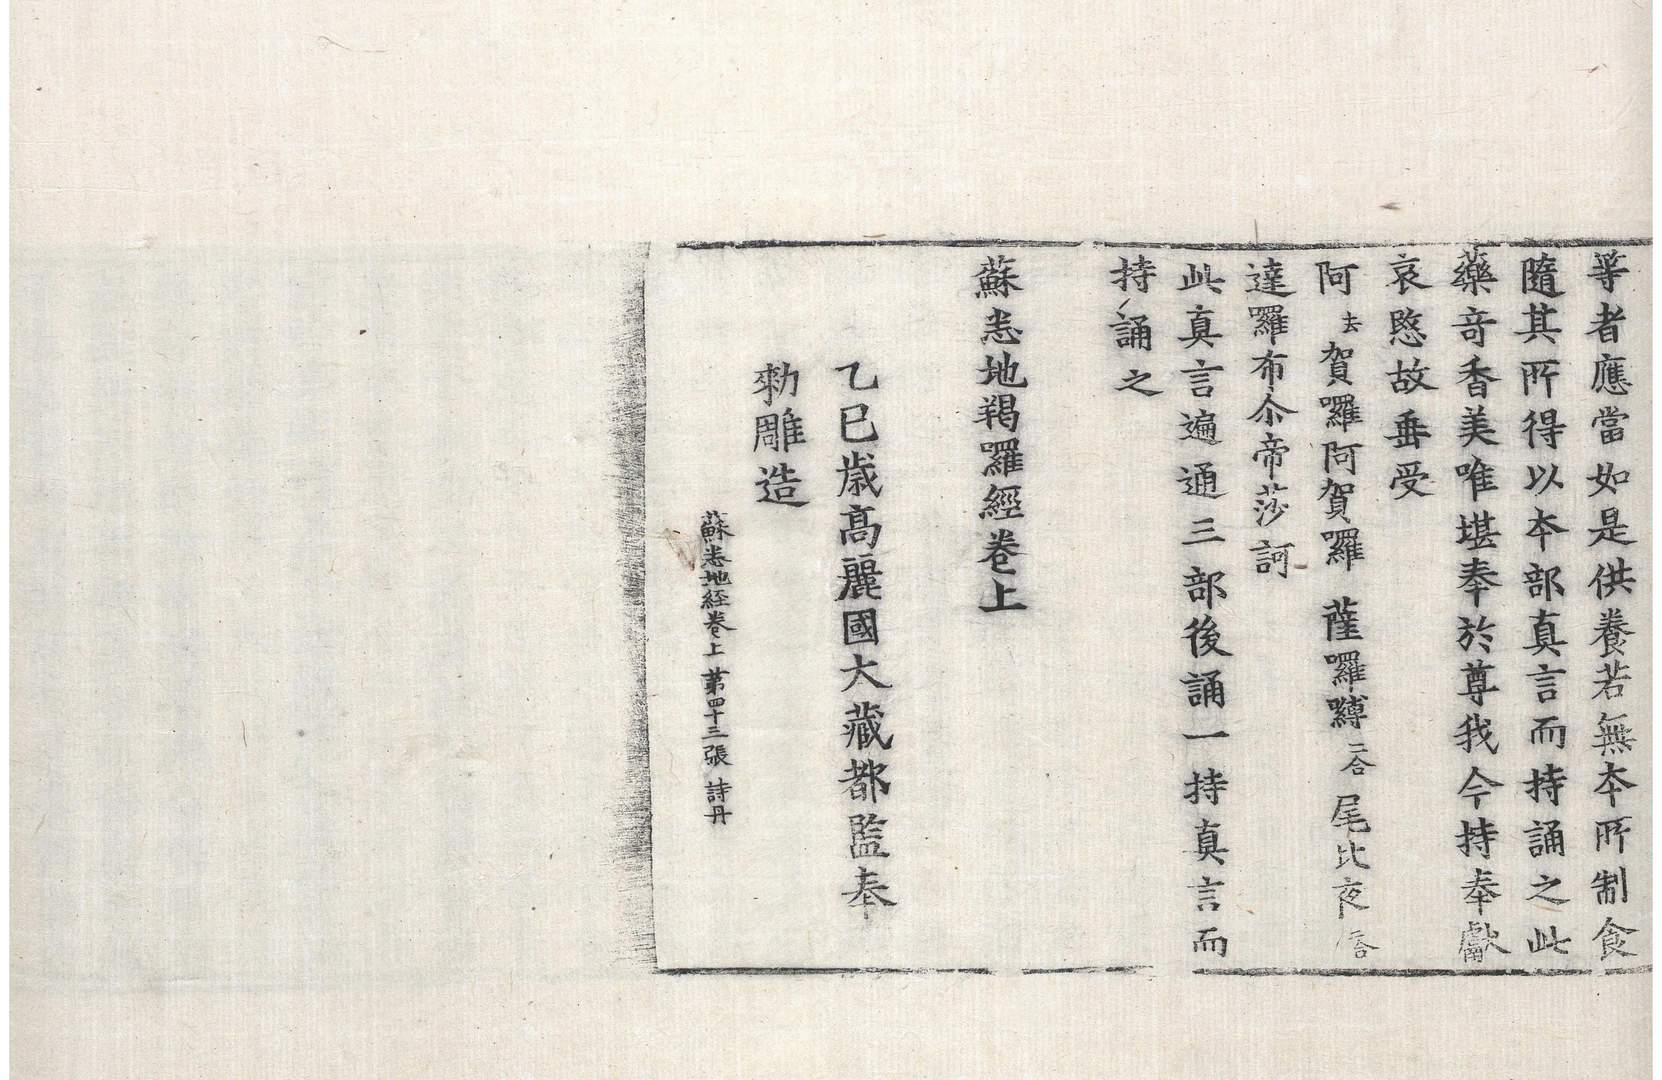 等者應當如是供養若無本所制食
隨其所得以本部真言而持誦之此
藥竒香美唯堪奉於尊我今持奉獻
哀愍故垂受
阿去賀囉阿賀囉薩囉嚩二合尾比夜二合
達羅布尒帝莎訶
此真言遍通三部後誦一持真言而
持誦之
蘇悉地羯囉經卷上
乙巳歳高麗國大藏都監奉
勑雕造
蘇悉地経卷上 第四十三張 詩丹